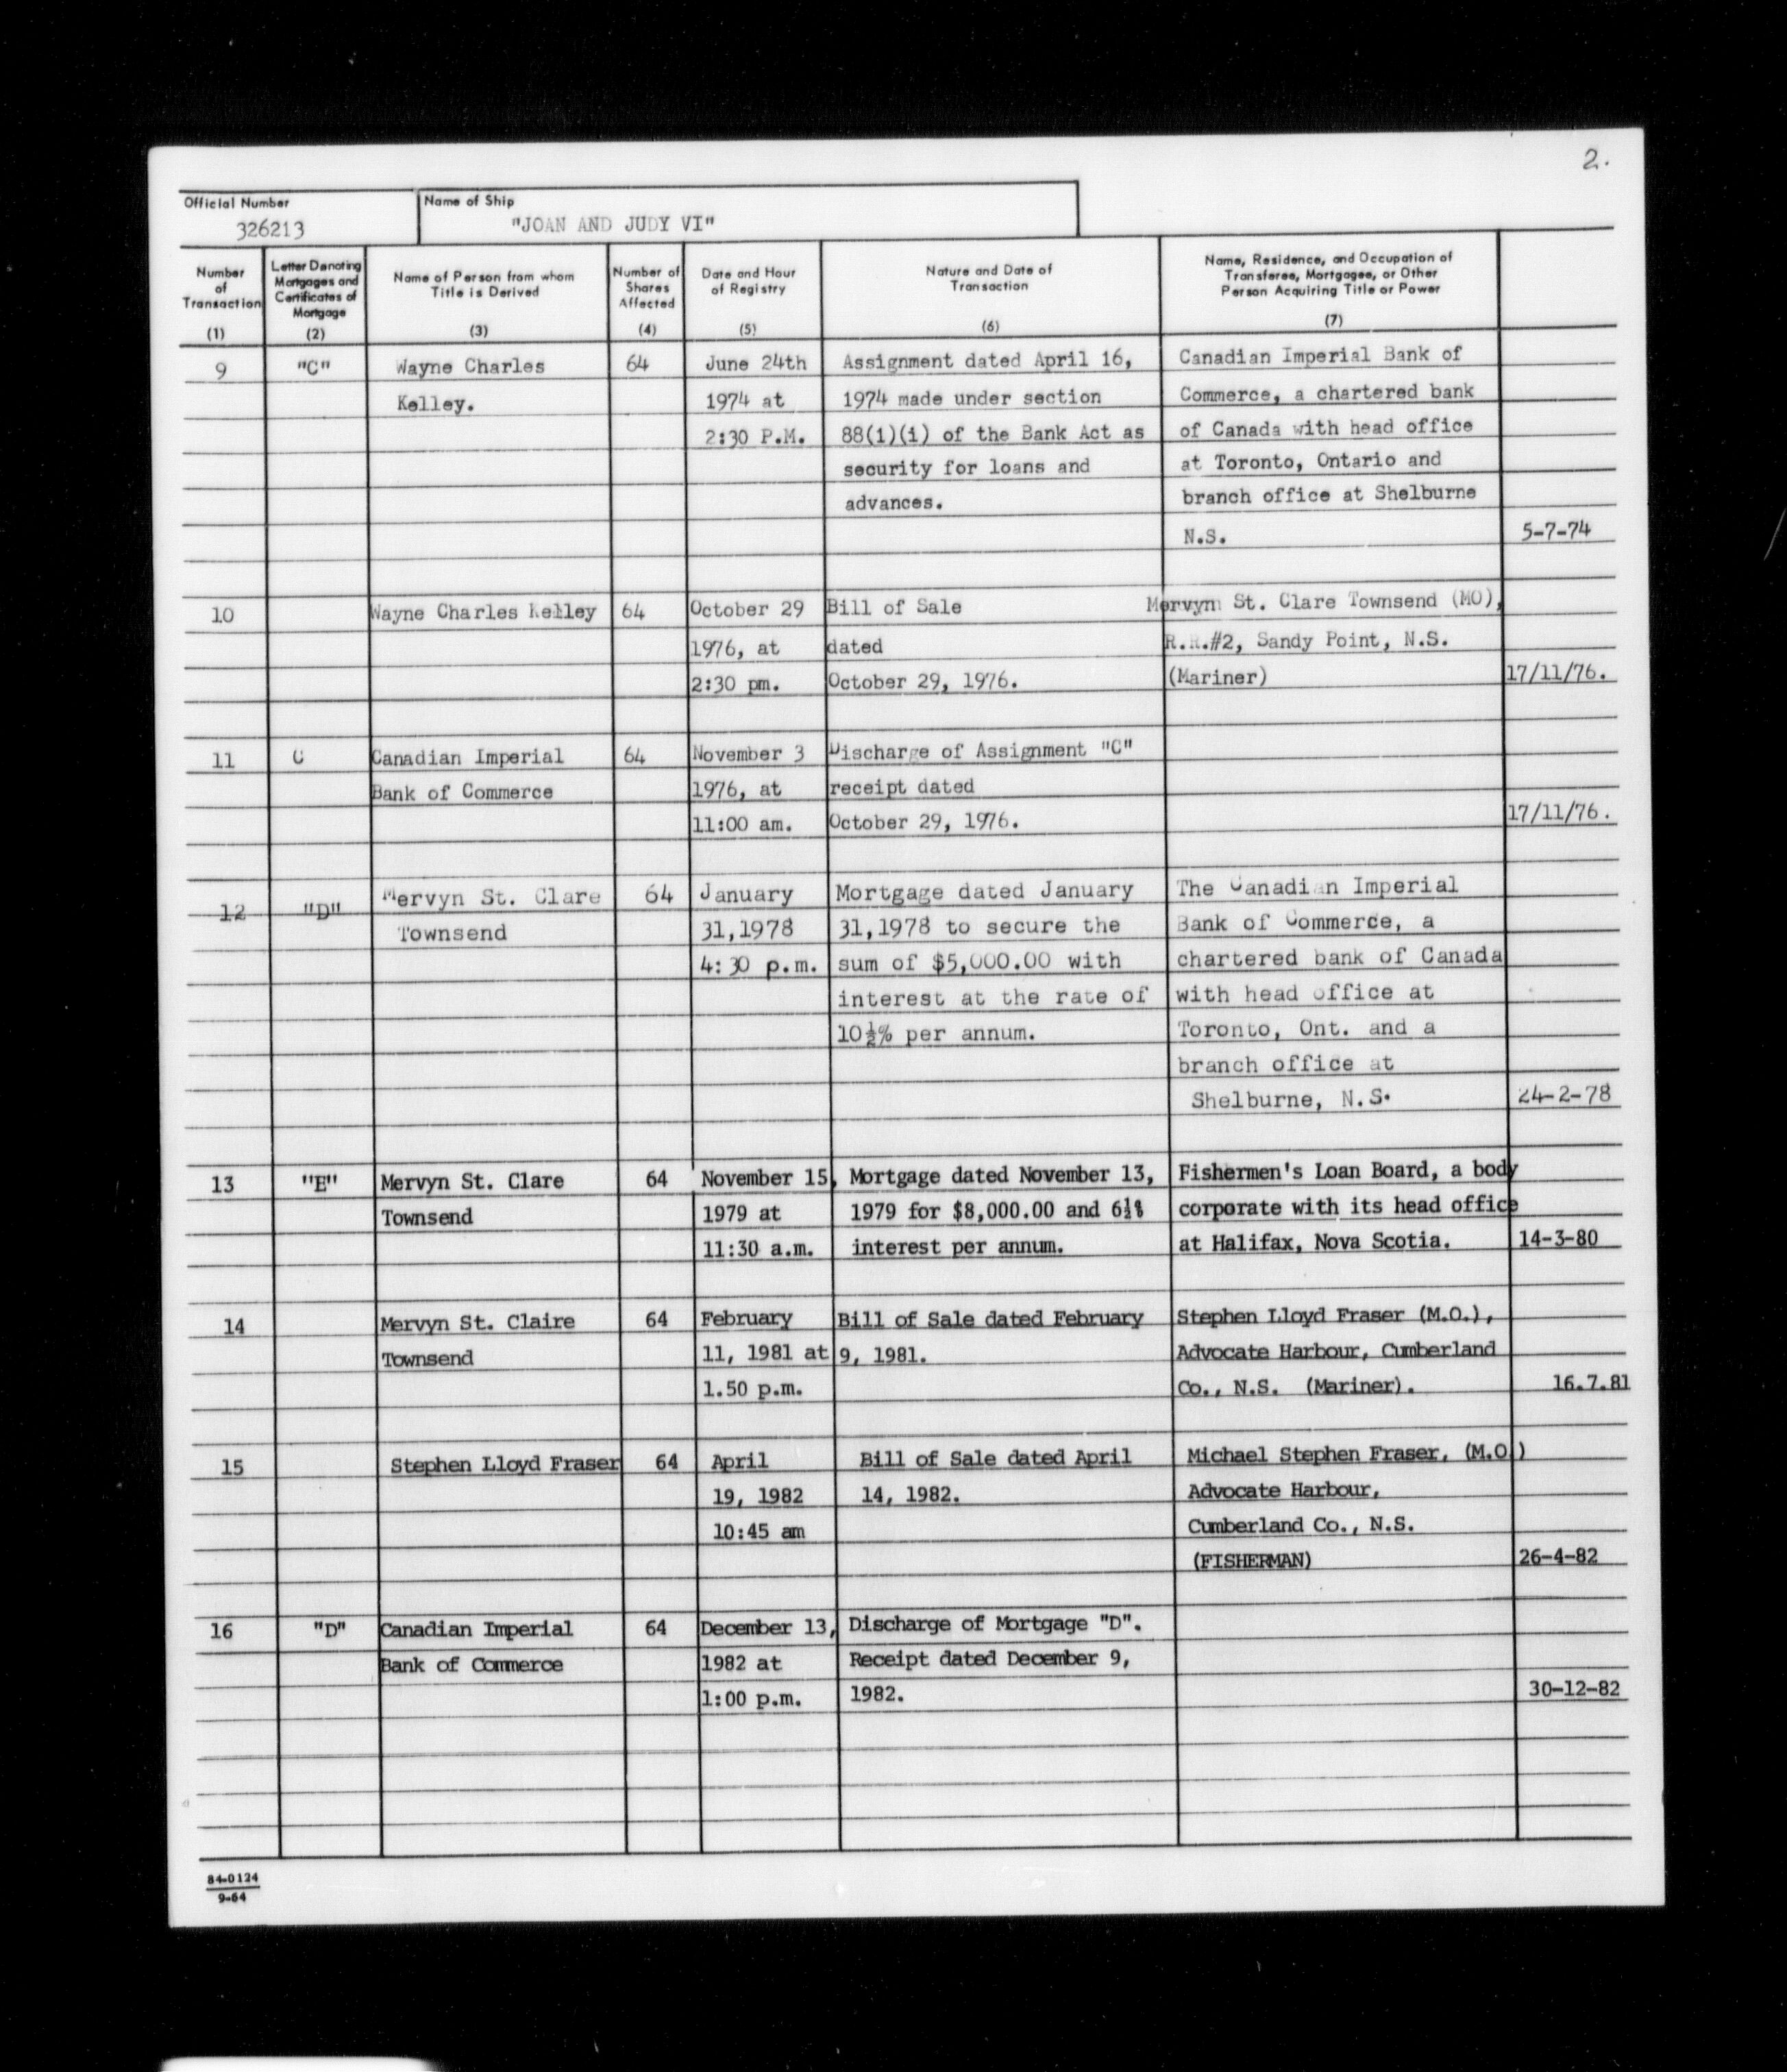 2.
Official Number
326213
Name of Ship
"JOAN AND JUDY VI"
Number of Transaction (1)
Letter Denoting Mortgages and Certificates of Mortgage (2)
Name of Person from whom Title is Derived (3)
Number of Shares Affected (4)
Date and Hour of Registry (5)
Nature and Date of Transaction (6)
Name, Residence, and Occupation of Transferee, Mortgagee, or Other Person Acquiring Title or Power (7)
9 "C" Wayne Charles 64 June 24th Assignment dated April 16, Canadian Imperial Bank of
Kelley. 1974 at 1974 made under section Commerce, a chartered bank
2:30 P.M. 88(1)(i) of the Bank Act as of Canada with head office
security for loans and at Toronto, Ontario and
advances. branch office at Shelburne
N.S. 5-7-74
10 Wayne Charles Kelley 64 October 29 Bill of Sale Mervyn St. Clare Townsend (MO),
1976, at dated R.R.#2, Sandy Point, N.S.
2:30 pm. October 29, 1976. (Mariner) 17/11/76.
11 C Canadian Imperial 64 November 3 Discharge of Assignment "C"
Bank of Commerce 1976, at receipt dated
11:00 am. October 29, 1976. 17/11/76.
12 "D" Mervyn St. Clare 64 January Mortgage dated January The Canadian Imperial
Townsend 31,1978 31,1978 to secure the Bank of Commerce, a
4:30 p.m. sum of $5,000.00 with chartered bank of Canada
interest at the rate of with head office at
10½% per annum. Toronto, Ont. and a
branch office at
Shelburne, N.S. 24-2-78
13 "E" Mervyn St. Clare 64 November 15, Mortgage dated November 13, Fishermen's Loan Board, a body
Townsend 1979 at 1979 for $8,000.00 and corporate with its head office
11:30 a.m. interest per annum. at Halifax, Nova Scotia. 14-3-80
14 Mervyn St. Claire 64 February Bill of Sale dated February Stephen Lloyd Fraser (M.O.),
Townsend 11, 1981 at 9, 1981. Advocate Harbour, Cumberland
1.50 p.m. Co., N.S. (Mariner). 16.7.81
15 Stephen Lloyd Fraser 64 April Bill of Sale dated April Michael Stephen Fraser, (M.O.)
19, 1982 14, 1982. Advocate Harbour,
10:45 am Cumberland Co., N.S.
(FISHERMAN) 26-4-82
16 "D" Canadian Imperial 64 December 13, Discharge of Mortgage "D".
Bank of Commerce 1982 at Receipt dated December 9,
1:00 p.m. 1982. 30-12-82
84-0124
9-64